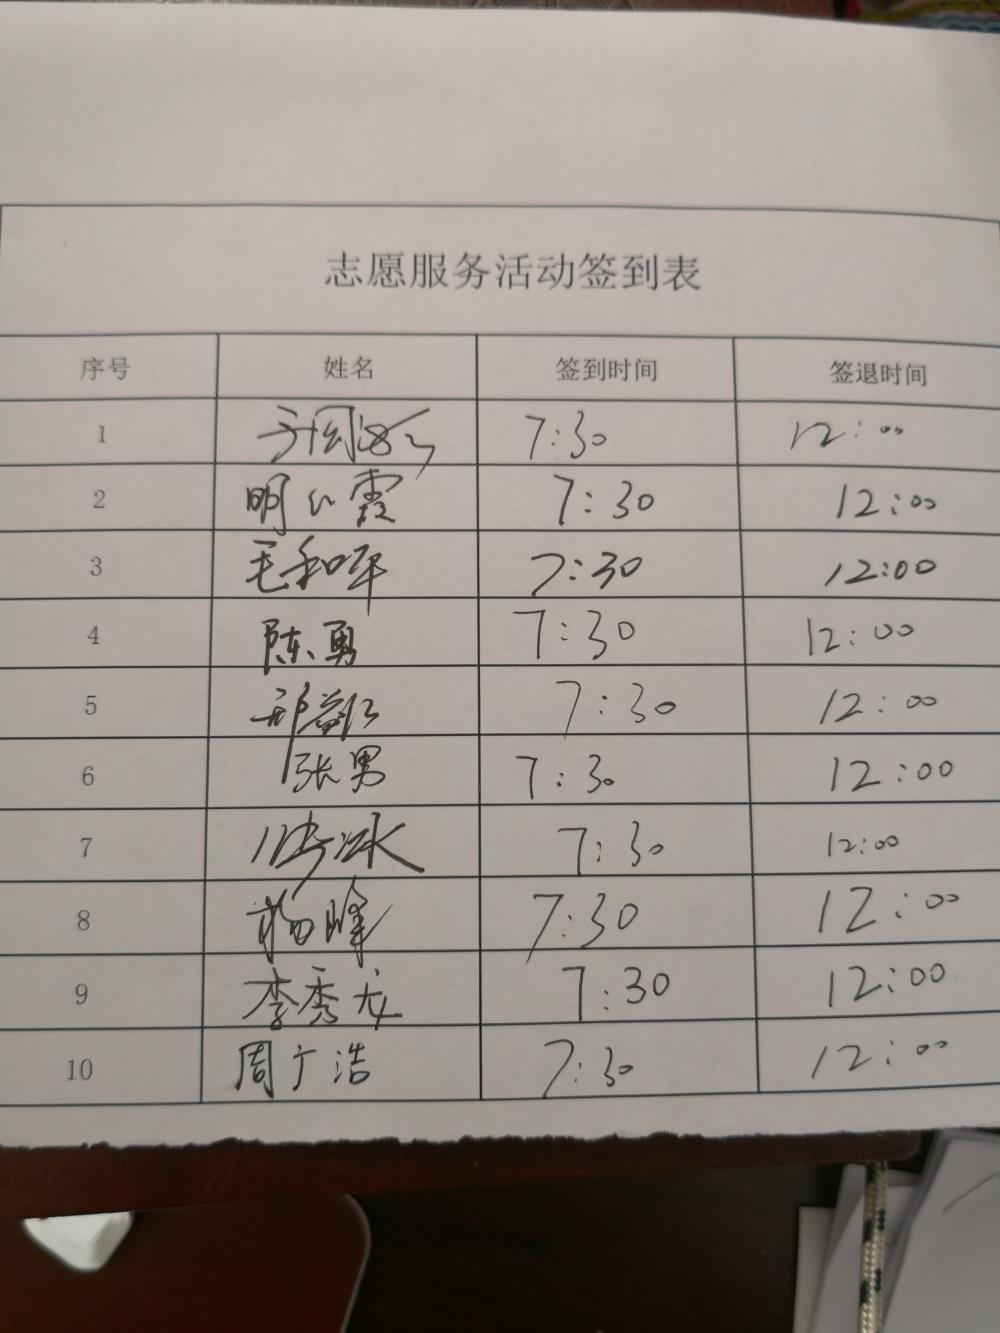 志愿服务活动签到表
序号 姓名 签到时间 签退时间
1 7:30 12:00
2 明红霞 7:30 12:00
3 毛和平 7:30 12:00
4 陈勇 7:30 12:00
5 邢益仁 7:30 12:00
6 张男 7:30 12:00
7 7:30 12:00
8 杨峰 7:30 12:00
9 李秀龙 7:30 12:00
10 周广浩 7:30 12:00